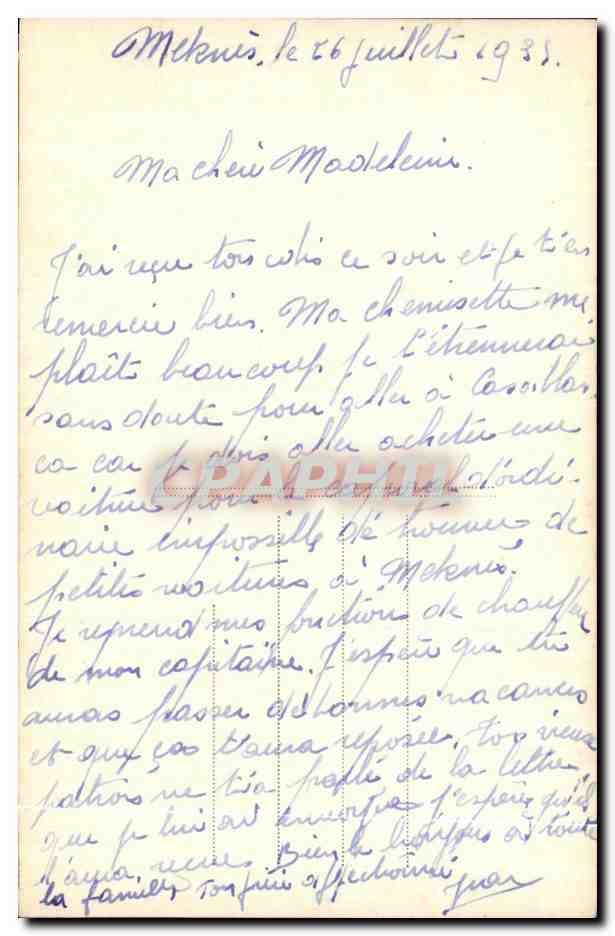 Meknès, le 26 juillet 193
Ma chère Madeleine.
J'ai reçu ton colis ce soir et je t'en
remercie bien. Ma chemisette me
plaît beaucoup je l'étrennerai
sans doute pour aller à Casablan-
ca car je dois aller acheter une
voiture pour le capitaine d'ordi-
naire impossible de trouver de
petites voitures à Meknès.
Je reprend mes fonctions de chauffeur
de mon capitaine. J'espère que tu
auras passer de bonnes vacances
et que ças t'aura reposée. Ton vieux
patron ne t'a parlé de la lettre
que je lui ai envoyée j'espère qu'il
l'aura reçue. Bien le bonjour à toute
la famille, Ton frère affectionné
CPAPHIL